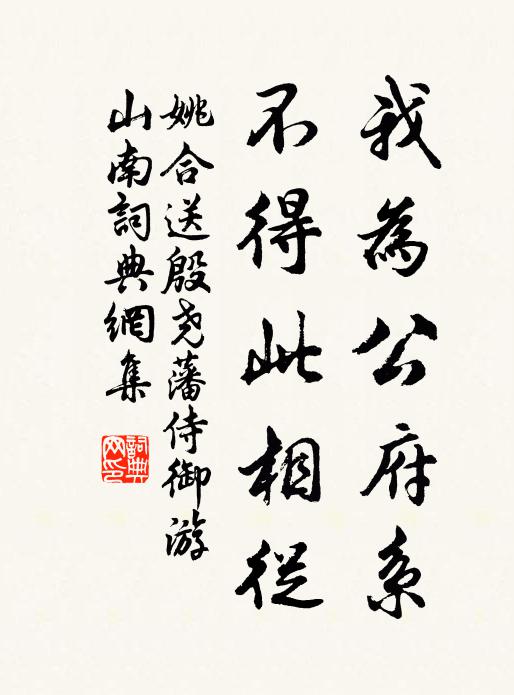 我為公府系
不得此相從
姚合送殷堯藩侍御游
山南詞典網集
詞典网印